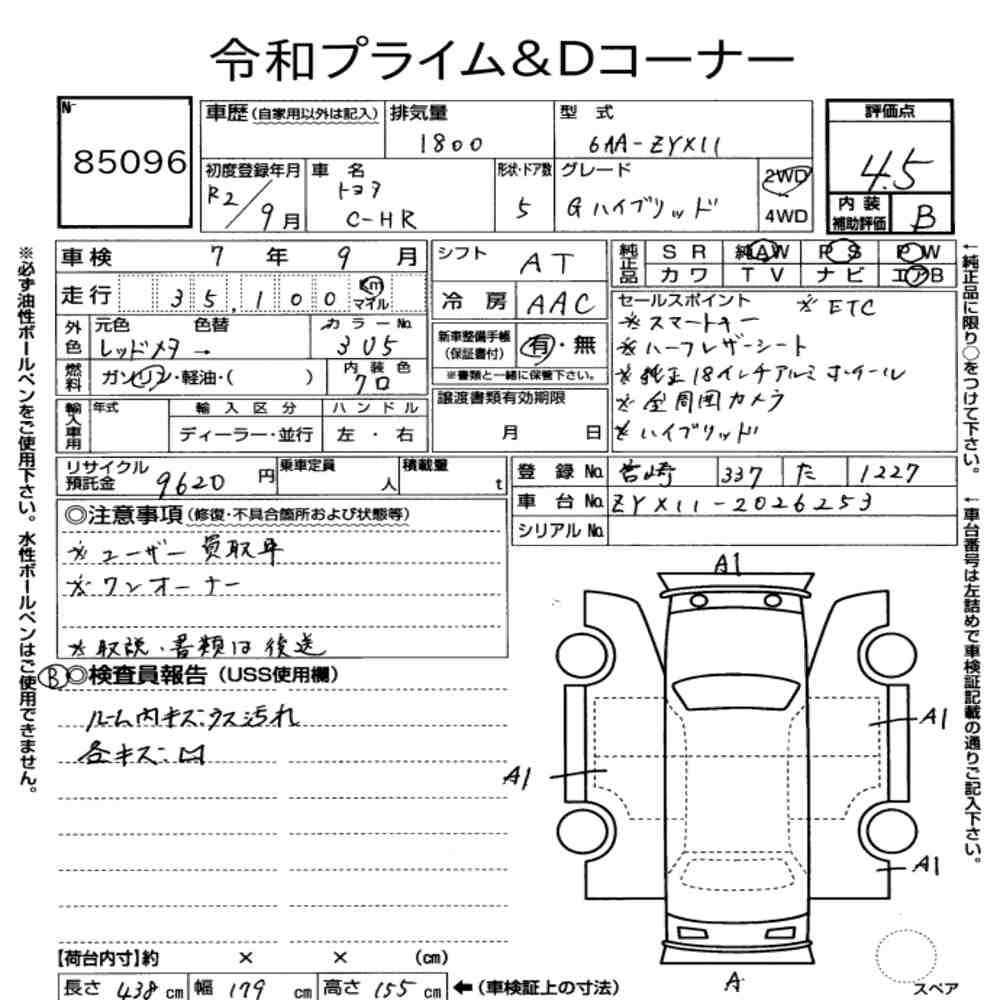 令和プライム&Dコーナー
N-
85096
車歴(自家用以外は記入)
排気量
1800
型 式
6AA-ZYX11
評価点
4.5
初度登録年月
R2/9月
車 名
トヨタ
C-HR
形状・ドア数
5
グレード
Gハイブリッド
2WD
4WD
内装
補助評価
B
車検 7年 9月
走行 35,100 km
マイル
シフト AT
冷房 AAC
純正品
SR 純AW PS PW
カワ TV ナビ エアB
外色
元色 色替
レッドメタ →
カラーNo.
3U5
燃料
ガソリン・軽油・( )
内装色
クロ
新車整備手帳
(保証書付)
有・無
※書類と一緒に保管下さい。
セールスポイント
※ ETC
※スマートキー
※ハーフレザーシート
※純正18インチアルミホイール
※全周囲カメラ
※ハイブリッド
輸入車用
年式
輸入区分
ディーラー・並行
ハンドル
左・右
譲渡書類有効期限
月 日
リサイクル
預託金
9620円
乗車定員
人
積載量
t
登録No. 宮崎 337 た 1227
車台No. ZYX11-2026253
シリアルNo.
◎注意事項(修復・不具合箇所および状態等)
※ユーザー買取車
※ワンオーナー
※取説・書類は後送
B
◎検査員報告(USS使用欄)
ルーム内キズ・ウス汚れ
各キズ・凹
A1
A1
A1
A1
A
スペア
【荷台内寸】約 × × (cm)
長さ 438 cm 幅 179 cm 高さ 155 cm ←(車検証上の寸法)
※必ず油性ボールペンをご使用下さい。水性ボールペンはご使用できません。
←純正品に限り○をつけて下さい。
←車台番号は左詰めで車検証記載の通りご記入下さい。